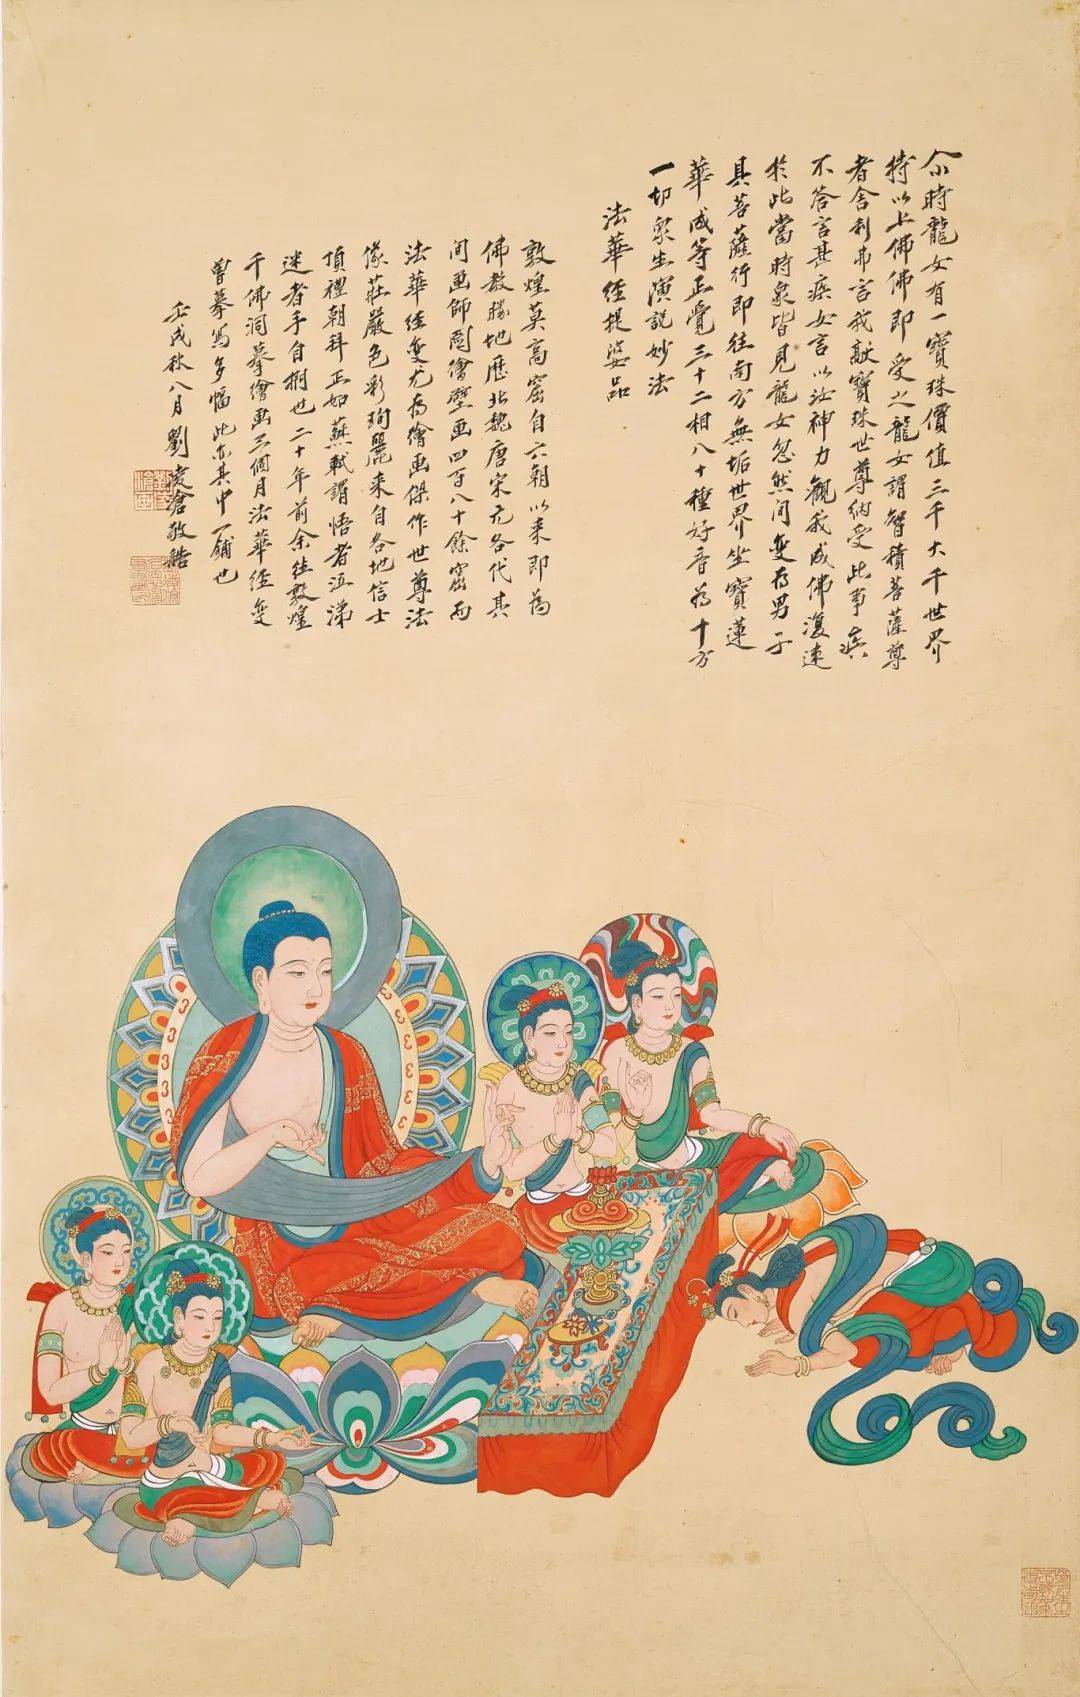 尒時龍女有一寶珠價值三千大千世界
持以上佛佛即受之龍女謂智積菩薩尊
者舍利弗言我獻寶珠世尊納受此事疾
不答言甚疾女言以汝神力觀我成佛復速
於此當時眾皆見龍女忽然间變為男子
具菩薩行即往南方無垢世界坐寶蓮
華成等正覺三十二相八十種好普為十方
一切眾生演說妙法
法華經提婆品
敦煌莫高窟自六朝以来即為
佛教勝地歷北魏唐宋元各代其
间画師圖繪壁画四百八十餘窟而
法華經變尤為繪画傑作世尊法
像莊嚴色彩絢麗来自各地信士
頂禮朝拜正如蘇軾謂悟者泣涕
迷者手自捫也二十年前余往敦煌
千佛洞摹繪画三個月法華經變
曾摹寫多幅此亦其中一鋪也
壬戌秋八月劉凌滄敬